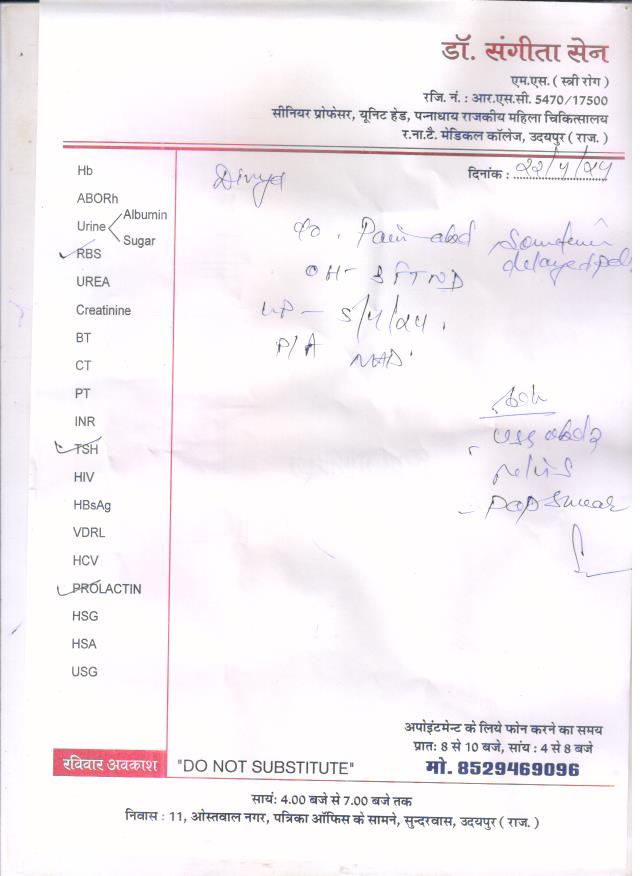 डॉ. संगीता सेन
एम.एस. ( स्त्री रोग )
रजि. नं. : आर.एस.सी. 5470/17500
सीनियर प्रोफेसर, यूनिट हेड, पन्नाधाय राजकीय महिला चिकित्सालय
र.ना.टै. मेडिकल कॉलेज, उदयपुर ( राज. )
दिनांक : २२/५/२५
Divya
Hb
ABORh
Urine Albumin
Sugar
RBS
UREA
Creatinine
BT
CT
PT
INR
TSH
HIV
HBsAg
VDRL
HCV
PROLACTIN
HSG
HSA
USG
c/o. Pain abd
delayed
OH-
LMP -
P/A NAD.
Adv
USG abd &
pelvis
- pap smear
अपोइंटमेन्ट के लिये फोन करने का समय
प्रात: 8 से 10 बजे, सांय : 4 से 8 बजे
मो. 8529469096
रविवार अवकाश "DO NOT SUBSTITUTE"
सायं: 4.00 बजे से 7.00 बजे तक
निवास : 11, ओस्तवाल नगर, पत्रिका ऑफिस के सामने, सुन्दरवास, उदयपुर ( राज. )